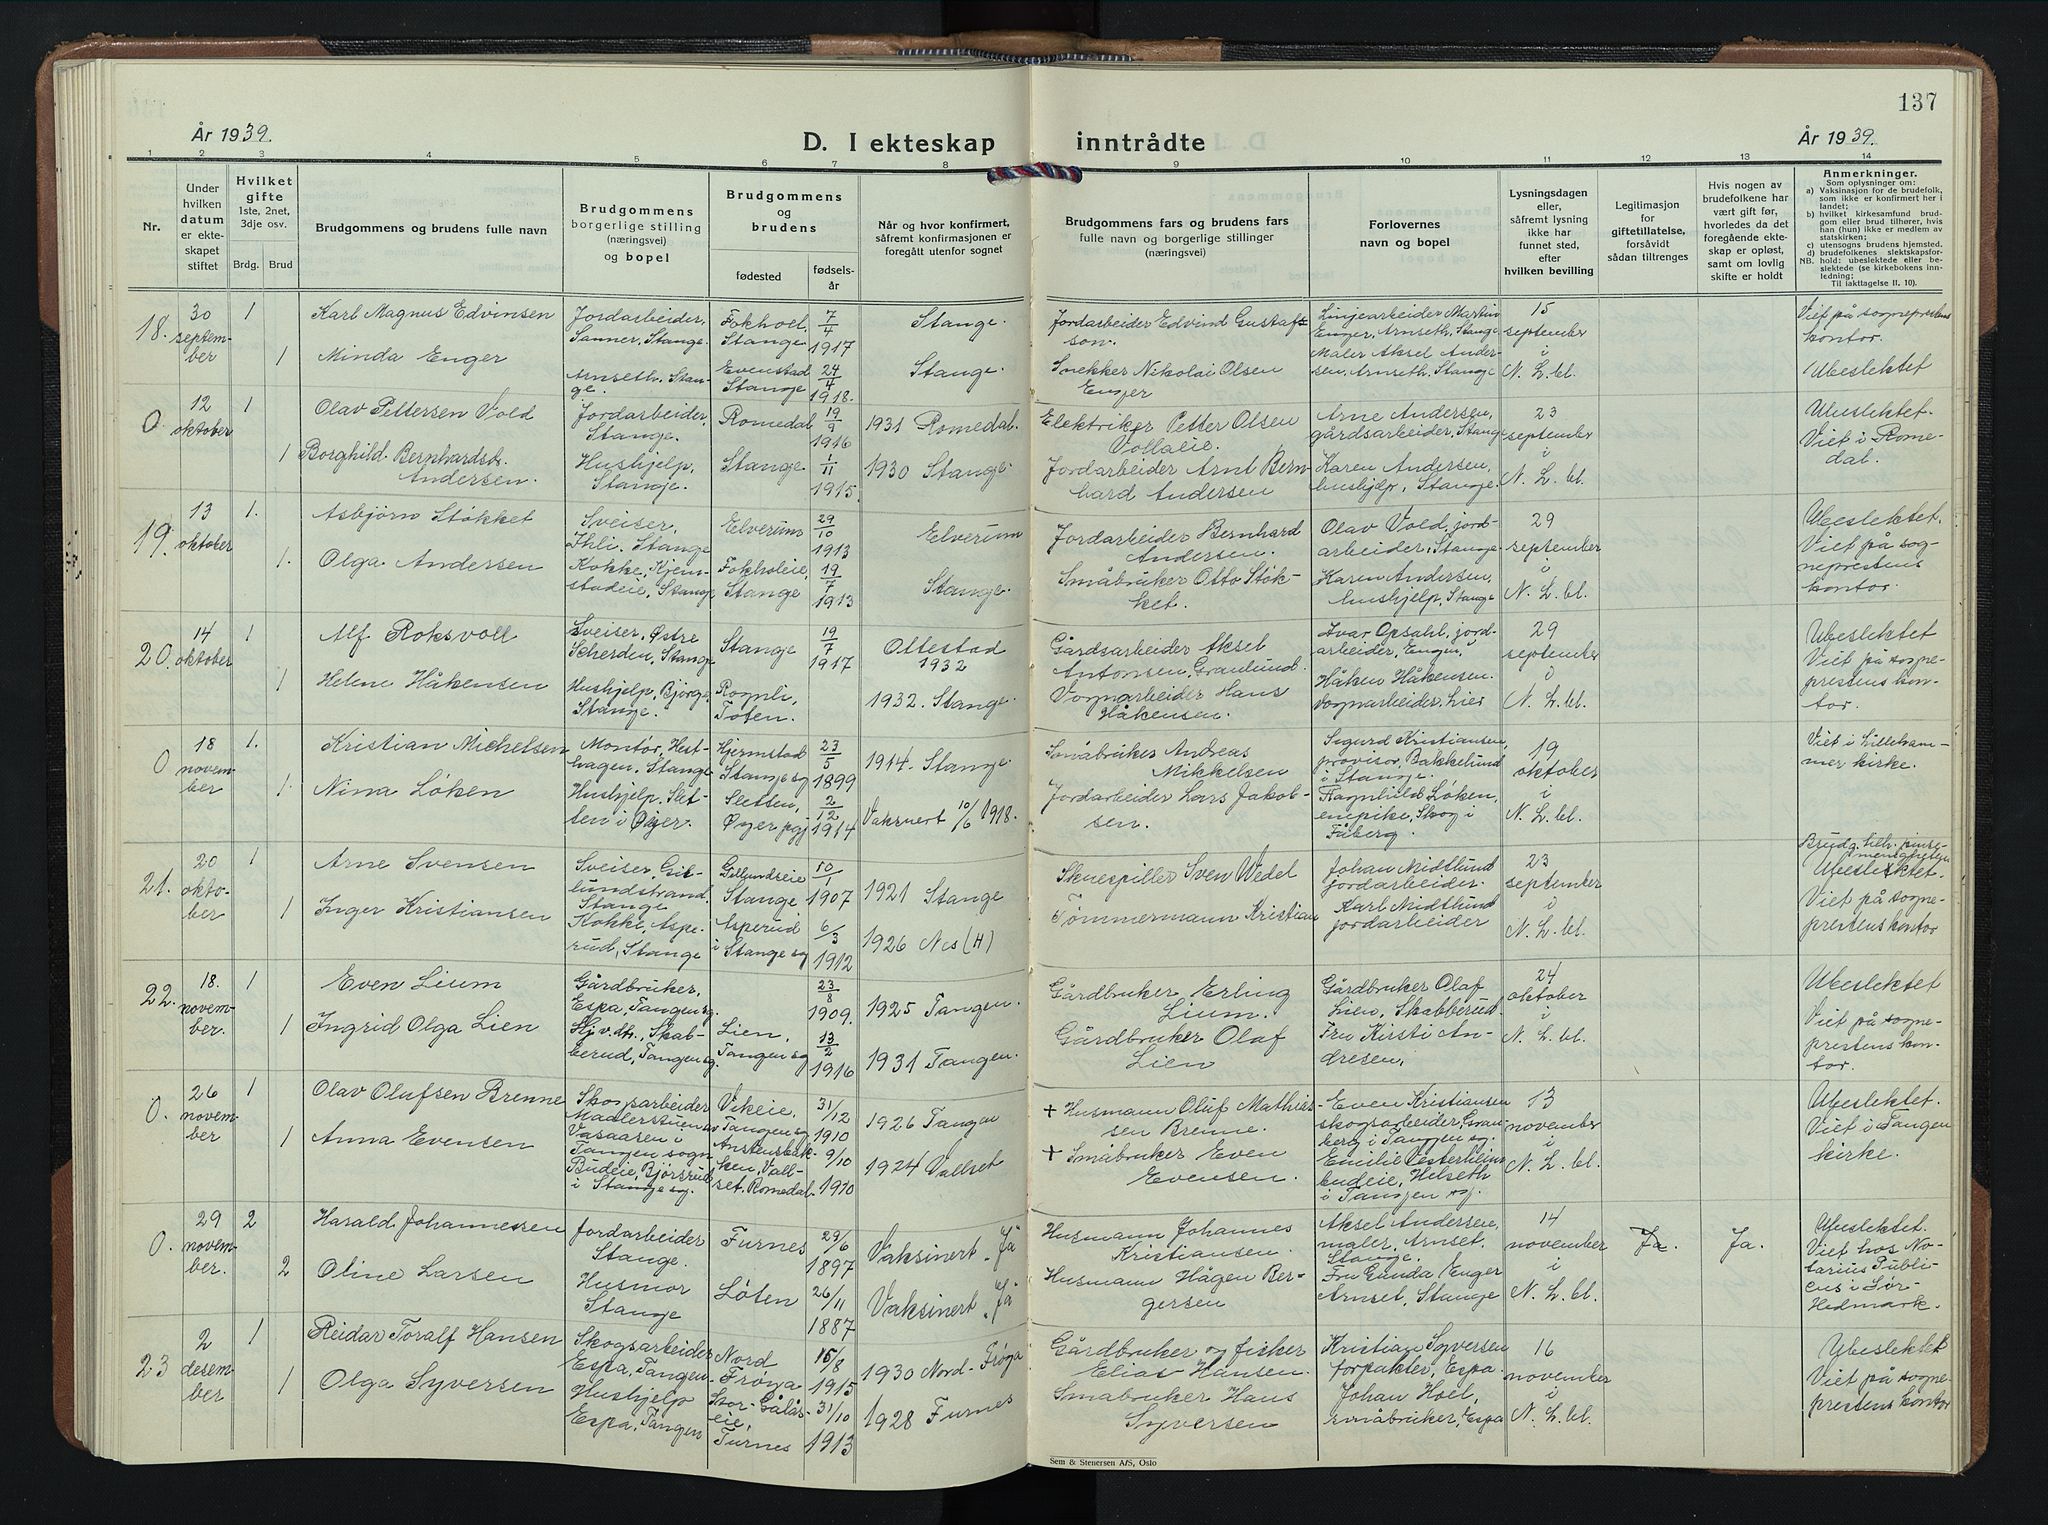 137
År 1939.
D. I ekteskap inntrådte
År 1939.
1 2 3 4 5 6 7 8 9 10 11 12 13 14
Nr.
Under hvilken datum er ekteskapet stiftet
Hvilket gifte
1ste, 2net, 3dje osv.
Brdg. Brud
Brudgommens og brudens fulle navn
Brudgommens borgerlige stilling (næringsvei) og bopel
Brudgommens og brudens
fødested
fødselsår
Når og hvor konfirmert, såfremt konfirmasjonen er foregått utenfor sognet
Brudgommens fars og brudens fars fulle navn og borgerlige stillinger (næringsvei)
Forlovernes navn og bopel
Lysningsdagen eller, såfremt lysning ikke har funnet sted, efter hvilken bevilling
Legitimasjon for giftetillatelse, forsåvidt sådan tiltrenges
Hvis nogen av brudefolkene har vært gift før, hvorledes da det foregående ekteskap er opløst, samt om lovlig skifte er holdt
Anmerkninger.
Som oplysninger om:
a) Vaksinasjon for de brudefolk, som ikke er konfirmert her i landet;
b) hvilket kirkesamfund brudgom eller brud tilhører, hvis han (hun) ikke er medlem av statskirken;
c) utensogns brudens hjemsted.
d) brudefolkenes slektskapsforhold: ubeslektede eller beslektede (se kirkebokens innledning;
NB. Til iakttagelse II. 10).
18. 30 september 1 Karl Magnus Edvinsen Jordarbeider, Sanner, Stange. Fokhoel, Stange 7/4 1917 Stange. Jordarbeider Edvind Gustafsson. Linjearbeider Martin Enger, Arnseth, Stange 15 september i N. L. bl. Viet på sogneprestens kontor.
1 Minda Enger Arnseth, Stange. Evenstad Stange 24/4 1918. Stange. Snekker Nikolai Olsen Enger Maler Aksel Andersen, Arnseth, Stange Ubeslektet
0 12 oktober 1 Olav Pettersen Vold Jordarbeider, Stange. Romedal 19/9 1916 1931 Romedal. Elektriker Petter Olsen Vollaeie. Arne Andersen, gårdsarbeider, Stange 23 september i N. L. bl. Ubeslektet. Viet i Romedal.
1 Borghild Bernhardsdt. Andersen. Hushjelp, Stange. Stange 1/11 1915. 1930 Stange. Jordarbeider Arnt Bernhard Andersen Karen Andersen, hushjelp, Stange.
19. 13 oktober 1. Asbjørn Støkket Sveiser, Ihli, Stange Elverum 29/10 1913 Elverum Jordarbeider Bernhard Andersen. Olav Vold, jordarbeider, Stange. 29 september i N. L. bl. Ubeslektet. Viet på sogneprestens kontor.
1. Olga Andersen Kokke, Kjemstadeie, Stange Fokholeie, Stange 19/7 1913 Stange. Småbruker Otto Støkket. Karen Andersen, hushjelp, Stange
20. 14 oktober 1 Alf Roksvoll Sveiser, Østre Scherden, Stange Stange 19/7 1917 Ottestad 1932 Gårdsarbeider Aksel Antonsen, Granlund. Ivar Opsahl, jordarbeider, Engen, 29 september i N. L. bl. Ubeslektet Viet på sogneprestens kontor.
1 Helene Håkensen Hushjelp, Bjørge, Stange. Rognli, Toten. 1932. Stange. Vognarbeider Hans Håkensen. Håken Håkensen. vognarbeider, Lier
0 18 november 1. Kristian Michelsen Montør, Hesthagen, Stange Hjermstad Stange sg 23/5 1899 1914. Stange. Småbruker Andreas Mikkelsen Sigurd Kristiansen, provisor, Bakkelund i Stange. 19 oktober i N. L. bl. Viet i Lillehammer kirke.
1. Nina Løken Hushjelp. Sletten i Øyer. Sletten, Øyer pgj 2/12 1914 Vaksnert 10/6 1918. Jordarbeider Lars Jakobsen. Ragnhild Løken, enepike, Skog i Fåberg.
21. 20 oktober 1 Arne Svensen Sveiser, Gillundstrand, Stange Gillundseie Stange 10/1 1907 1921 Stange Skuespiller Sven Wedel Johan Midtlund jordarbeider. 23 september i N. L. bl. Brudg. tilh. pinsemenigheten Ubeslektet. Viet på sogneprestens kontor
1 Inger Kristiansen Kokke, Asperud, Stange Asperud i Stange sg 6/3 1912 1926 Nes (H) Tømmermann Kristian Karl Midtlund jordarbeider
22. 18. november. 1 Even Lium Gårdbruker, Espa, Tangen sg. 23/8 1909. 1925 Tangen. Gårdbruker Erling Lium. Gårdbruker Olaf Lien, Skabberud. 24 oktober i N. L. bl. Ubeslektet Viet på sogneprestens kontor.
1 Ingrid Olga Lien Hj.v.dt., Skabberud, Tangen sg. Lien, Tangen sg 13/2 1916 1931 Tangen. Gårdbruker Olaf Lien Fru Kirsti Andresen,
0. 26 november 1 Olav Olufsen Brenne Skogsarbeider Madlerstuen av Vasaasen i Tangen sogn Vikeie, Tangen sg 31/12 1910 1926 Tangen + Husmann Oluf Mathiassen Brenne. Even Kristiansen skogsarbeider, Granberg i Tangen sg. 13 november i N. L. bl. Ubeslektet. Viet i Tangen kirke.
1 Anna Evensen Budeie, Bjørsrud i Stange sg. Anstensbakken, Vallset, Romedal. 9/10 1910 1924 Vallset + Småbruker Even Evensen. Emilie Vesterhline budeie, Helseth i Tangen sg.
0. 29 november. 2 Harald Johannessen Jordarbeider Stange. Furnes 29/6 1897 Vaksinert "Ja" Husmann Johannes Kristiansen. Aksel Andersen, maler, Arnset, Stange. 14 november i N. L. bl. Ja. Ja. Ubeslektet. Viet hos Notarius Publicus i Sør-Hedmark.
2 Oline Larsen Husmor Stange Løten 26/11 1887 Vaksinert "Ja" Husmann Hågen Bergersen Fru Gunda Enger Arnset, Stange
23 2 desember 1 Reidar Toralf Hansen Skogsarbeider Espa, Tangen. Nord Frøya 15/8 1915 1930 Nord-Frøya Gårdbruker og fisker Elias Hansen. Kristian Syversen forpakter, Espa. 16 november i N. L. bl. Ubeslektet Viet på sogneprestens kontor
1 Olga Syversen Hushjelp Espa, Tangen Stor-Gålåseie, Furnes 31/10 1913 1928 Furnes Småbruker Hans Syversen Johan Hoel, småbruker, Espa
Sem & Stenersen A/S, Oslo